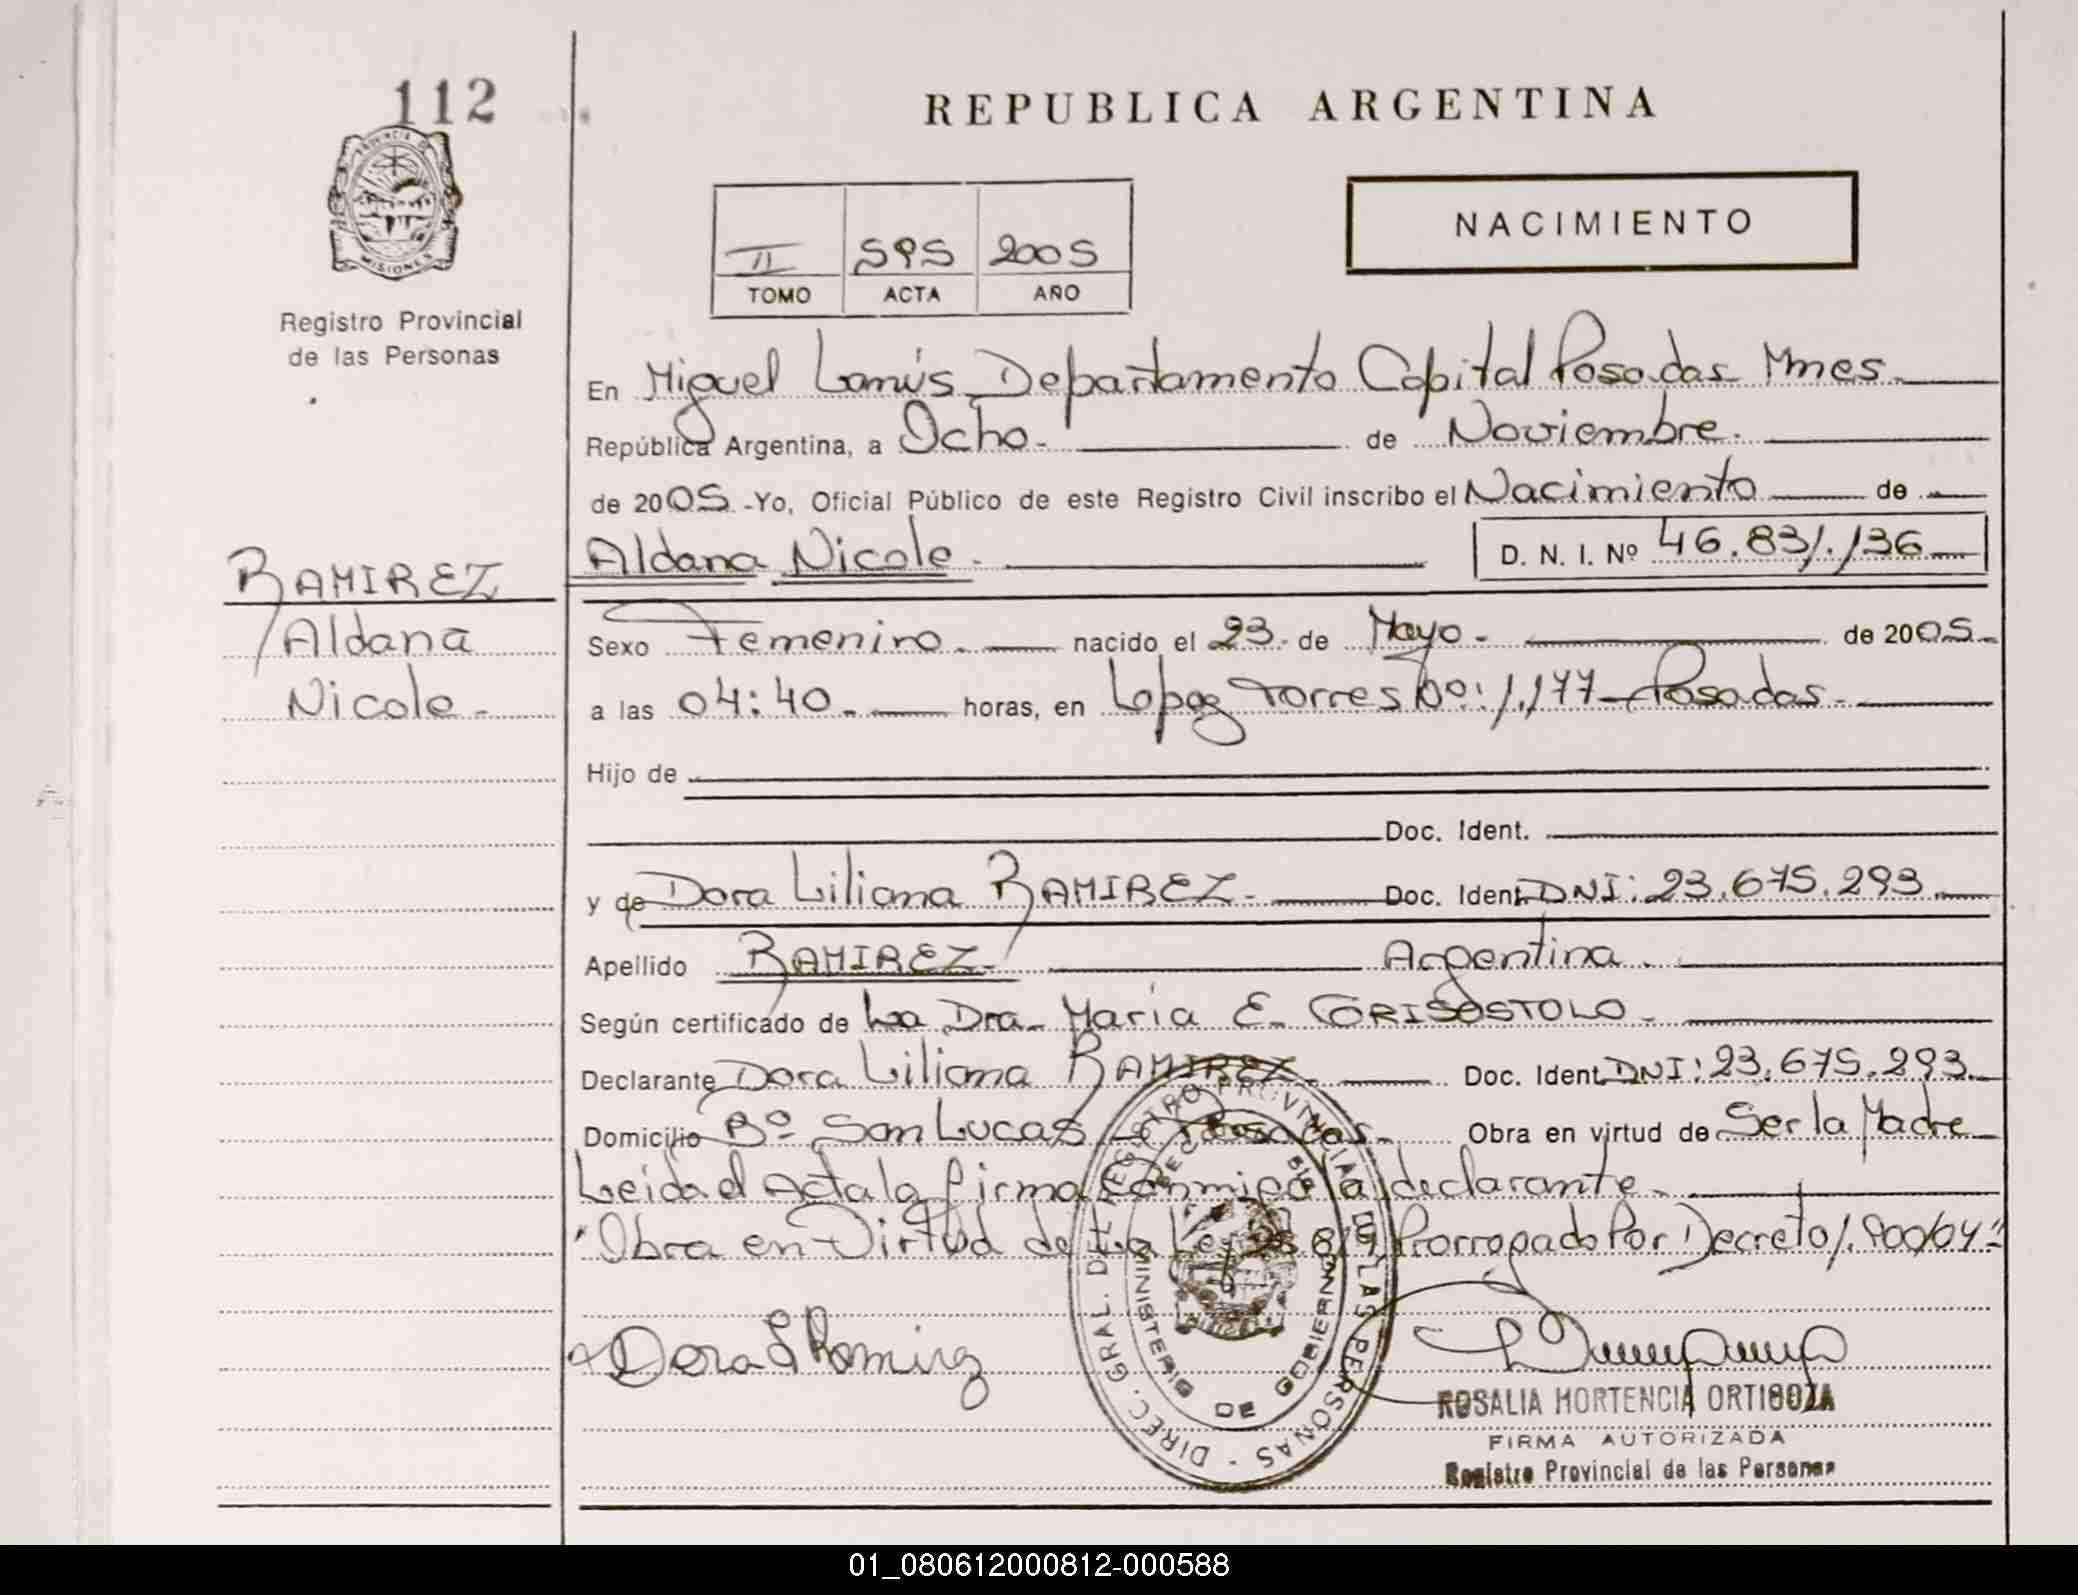 112
PROVINCIA DE
MISIONES
Registro Provincial
de las Personas
REPUBLICA ARGENTINA
II 595 2005
TOMO ACTA AÑO
NACIMIENTO
En Miguel Lanús Departamento Capital Posadas Mnes.
República Argentina, a Ocho. de Noviembre.
de 2005 -Yo, Oficial Público de este Registro Civil inscribo el Nacimiento de
Aldana Nicole. D. N. I. Nº 46.831.136
RAMIREZ
Aldana
Nicole.
Sexo Femenino. nacido el 23. de Mayo. de 2005.
a las 04:40. horas, en Lopez Torres Nº: 1.177 - Posadas.
Hijo de
Doc. Ident.
y de Dora Liliana RAMIREZ. Doc. Ident. DNI: 23.675.293.
Apellido RAMIREZ. Argentina.
Según certificado de La Dra. María E. GRISOSTOLO.
Declarante Dora Liliana RAMIREZ. Doc. Ident. DNI: 23.675.293.
Domicilio Bº San Lucas - Posadas. Obra en virtud de Ser la Madre
Leida el Acta la firma conmigo la declarante.
"Obra en Virtud de La Ley Prorrogado Por Decreto
Dora L Ramirez
DIREC. GRAL. DEL REGISTRO PROVINCIAL DE LAS PERSONAS -
MINISTERIO DE GOBIERNO
ROSALIA HORTENCIA ORTIGOZA
FIRMA AUTORIZADA
Registro Provincial de las Personas
01_080612000812-000588